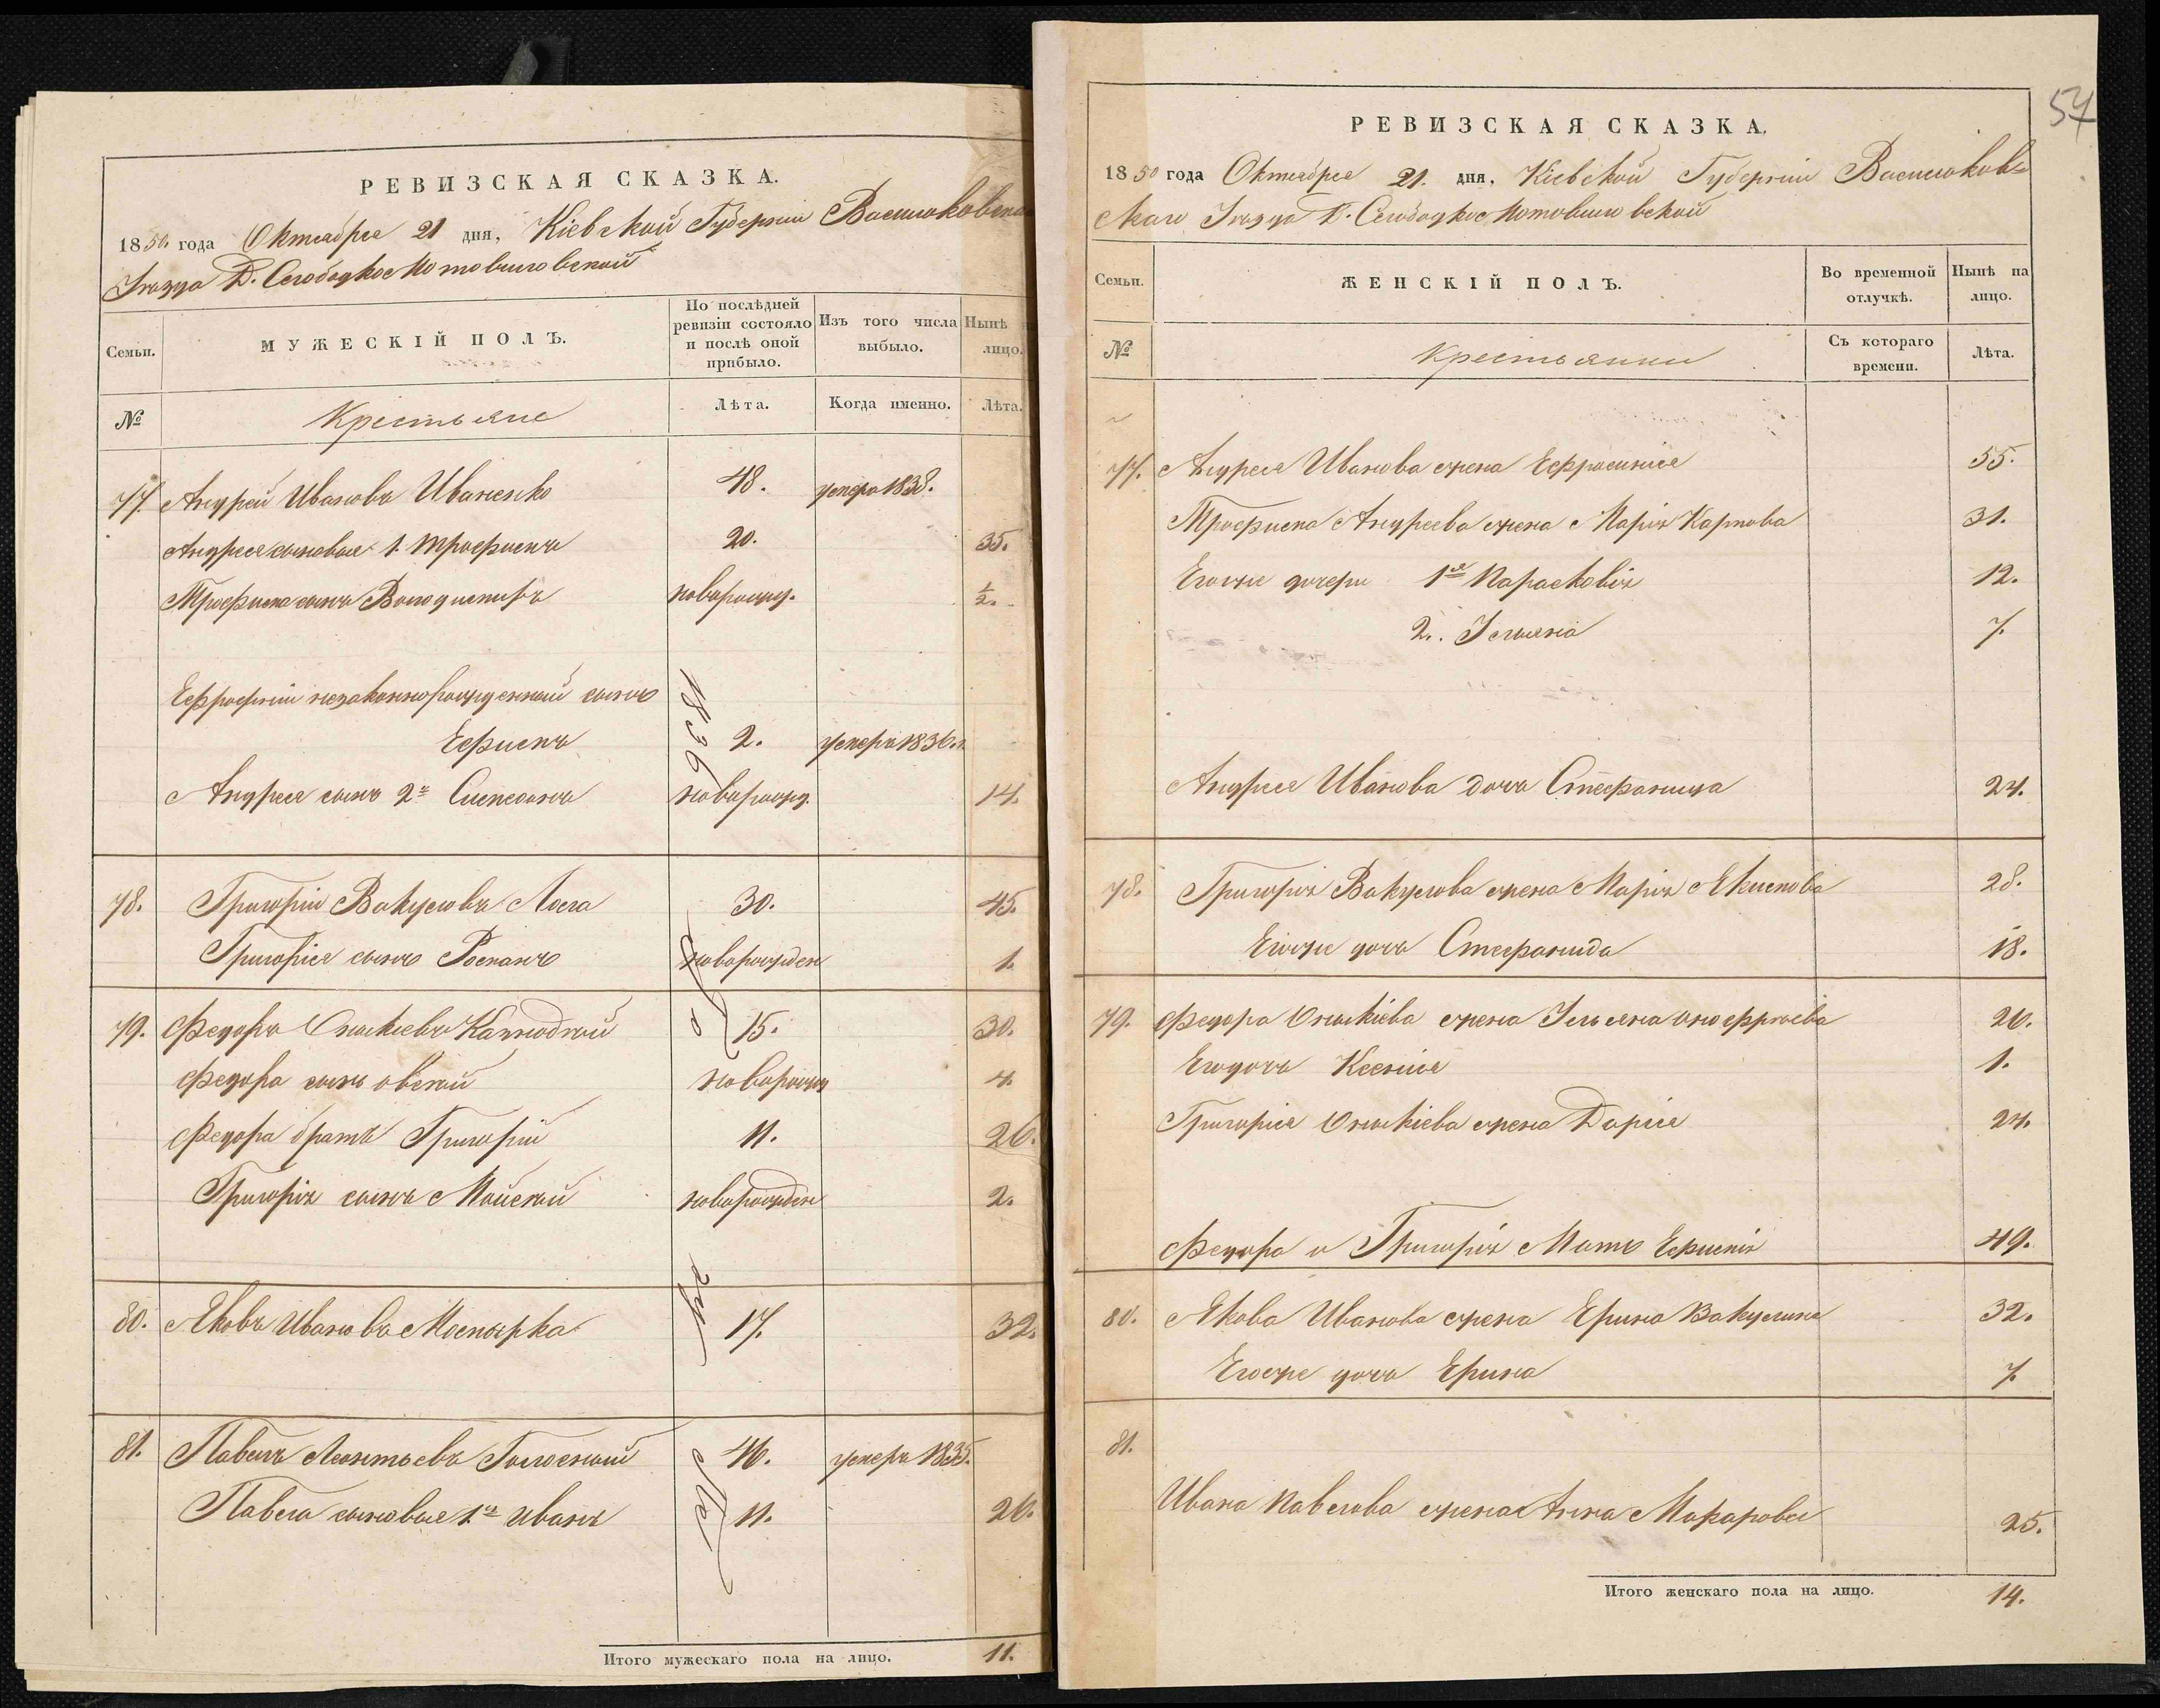 РЕВИЗСКАЯ СКАЗКА.
1850 года Октября 21 дня, Кіевской Губерніи Васильковска
Уѣзда Д. Слободко Мотовиловской
Семьи. МУЖЕСКІЙ ПОЛЪ. По послѣдней ревизіи состояло и послѣ оной прибыло. Изъ того числа выбыло. Нынѣ лицо.
№ Крестьяне Лѣта. Когда именно. Лѣта.
77. Андрей Ивановъ Иваненко 48. умеръ 1838.
Андрея сыновья 1. Трофимъ 20. 35.
Трофима сынъ Володимиръ новорожд. ½.
незаконнорожденный сынъ
Ефимъ 2. умеръ 1836.
Андрея сынъ 2й Симеонъ новорожд. 14.
1836
78. Григорій Вакуловъ Лога 30. 45.
Григорія сынъ Романъ новорожден 1.
79. Федоръ 15. 30.
Федора сынъ новорожд 4.
Федора братъ Григорій 11. 26.
Григорія сынъ Мойсей новорожден 2.
80. Яковъ Ивановъ 17. 32.
81. Павелъ Леонтьевъ 46. умеръ 1835.
Павла сыновья 1й Иванъ 11. 26.
Итого мужескаго пола на лицо. 11.
54
РЕВИЗСКАЯ СКАЗКА.
1850 года Октября 21. дня, Кіевской Губерніи Васильков
скаго Уѣзда Д. Слободко Мотовиловской
Семьи. ЖЕНСКІЙ ПОЛЪ. Во временной отлучкѣ. Нынѣ на лицо.
№ Крестьянки Съ котораго времени. Лѣта.
77. Андрея Иванова жена Ефросинія 55.
Трофима Андреева жена Марія Карпова 31.
Егоже дочери 1я Парасковія 12.
2. Ульяна 7.
Андрея Иванова дочь Стефанида 24.
78. Григорія Вакулова жена Марія Якимова 28.
Егоже дочь Стефанида 18.
79. Федора Онькіева жена Ульяна 26.
Его дочь Ксенія 1.
Григорія Онькіева жена Дарія 24.
Федора и Григорія Мать Ефимія 49.
80. Якова Иванова жена Ерина Вакулина 32.
Егоже дочь Ерина 7.
81.
Ивана Павлова жена Анна Макарова 25.
Итого женскаго пола на лицо. 14.